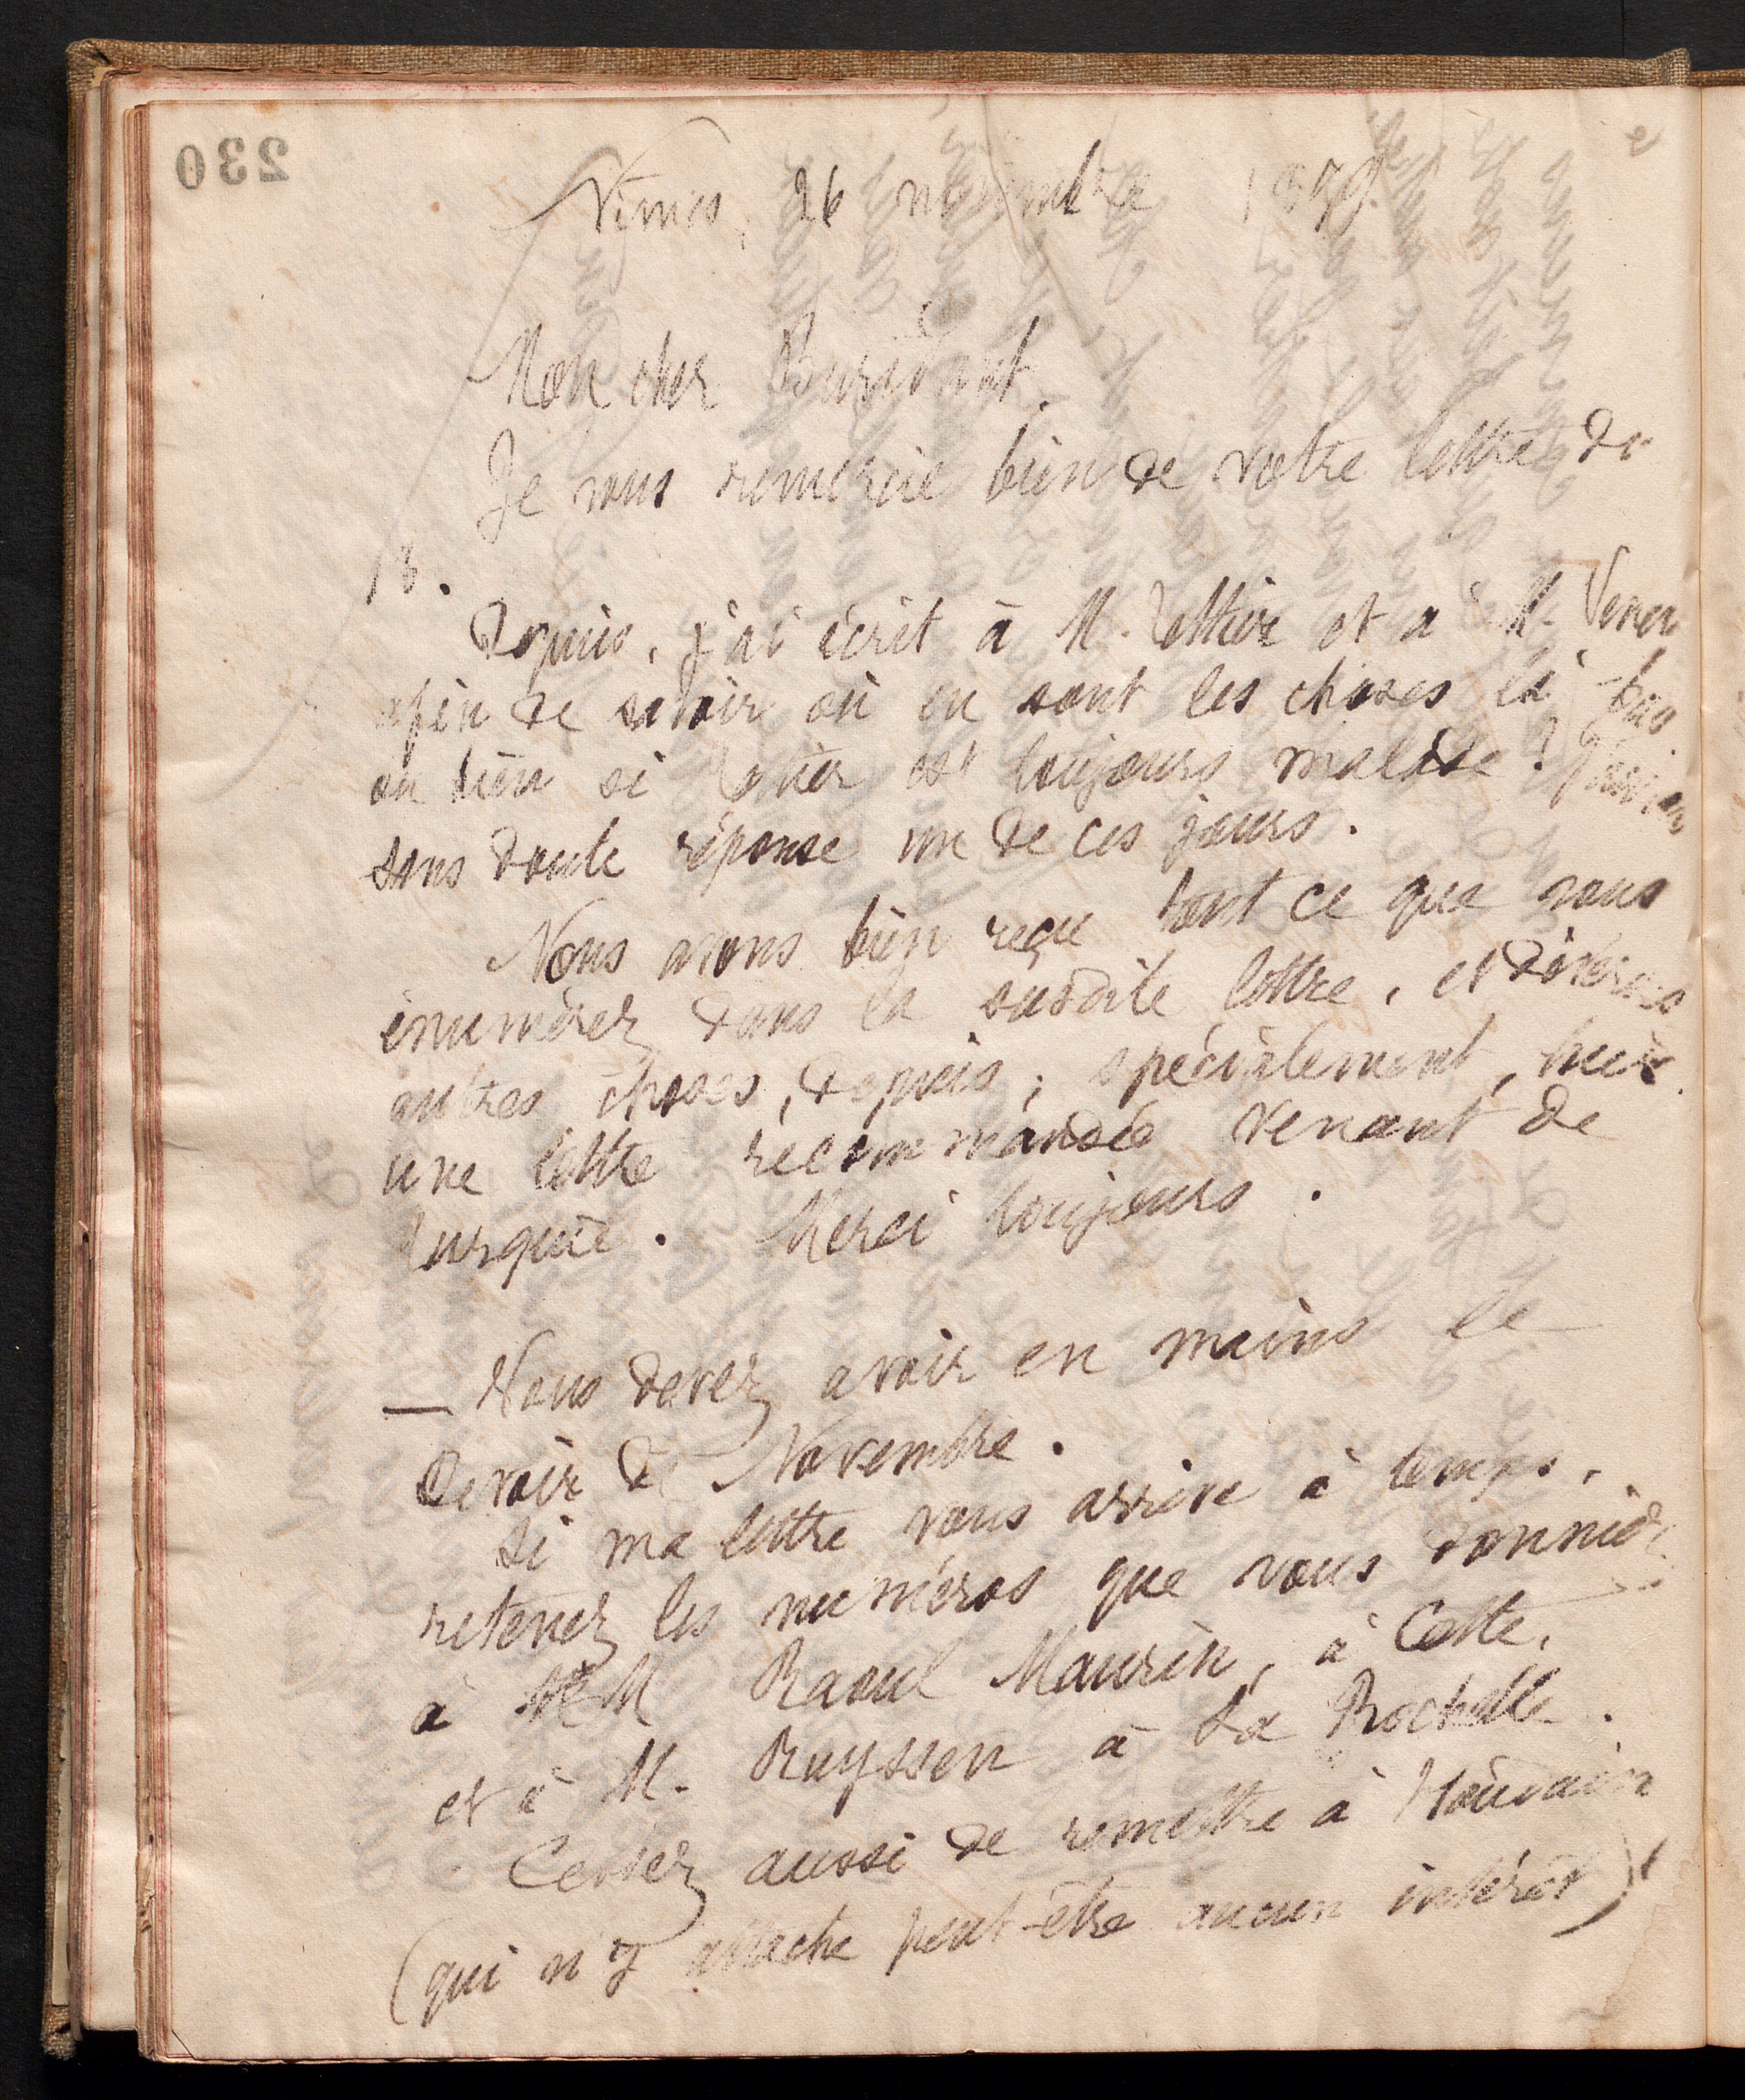 230
Nîmes, 26 novembre 1899
Mon cher Buridant,
Je vous remercie bien de votre lettre du
13.
Depuis, j'ai écrit à M. et à M.
afin de savoir où en sont les choses là-bas
ou bien si est toujours malade?
sans doute réponse un de ces jours.
Nous avons bien reçu tout ce que vous
énumérez dans la susdite lettre, et diverses
autres choses, depuis, spécialement, hier
une lettre recommandée venant de
Turquie. Merci toujours.
— Vous devez avoir en mains le
Devoir de Novembre.
Si ma lettre vous arrive à temps,
retenez les numéros que vous donniez
à M Raoul Maurin, à Cette,
et à M. Ruyssen à La Rochelle.
Cessez aussi de remettre à Houdain
(qui n'y attache peut-être aucun intérêt)